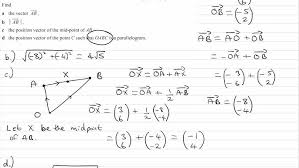 Find
a the vector AB.
b |AB|.
c the position vector of the mid-point of AB.
d the position vector of the point C such that OABC is a parallelogram.
OB = (-5 2)
AB = AO + OB
b.) √(-8)² + (-4)² = 4√5
= -(3 6) + (-5 2)
c.) A X B O
OX = OA + AX
OX = OA + ½ AB
= (-3 -6) + (-5 2)
OX = (3 6) + ½ (-8 -4)
AB = (-8 -4)
Let X be the midpoint of AB.
= (3 6) + (-4 -2) = (-1 4)
d.)